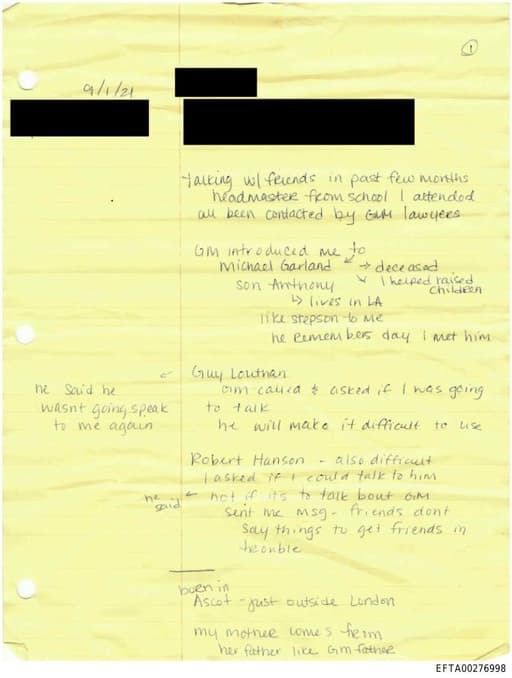 1
9/1/21
talking w/ friends in past few months
headmaster from school I attended
all been contacted by GM lawyers
GM introduced me to
Michael Garland → deceased
son Anthony ↘ I helped raised children
↳ lives in LA
like stepson to me
he remembers day I met him
Guy Louthan
GM called & asked if I was going
he said he
wasnt going speak
to me again
to talk
he will make it difficult to use
Robert Hanson - also difficult
I asked if I could talk to him
he said ← not if its to talk bout GM
sent me msg - friends dont
say things to get friends in
trouble
born in
Ascot - just outside London
my mother comes from
her father like GM father
EFTA00276998